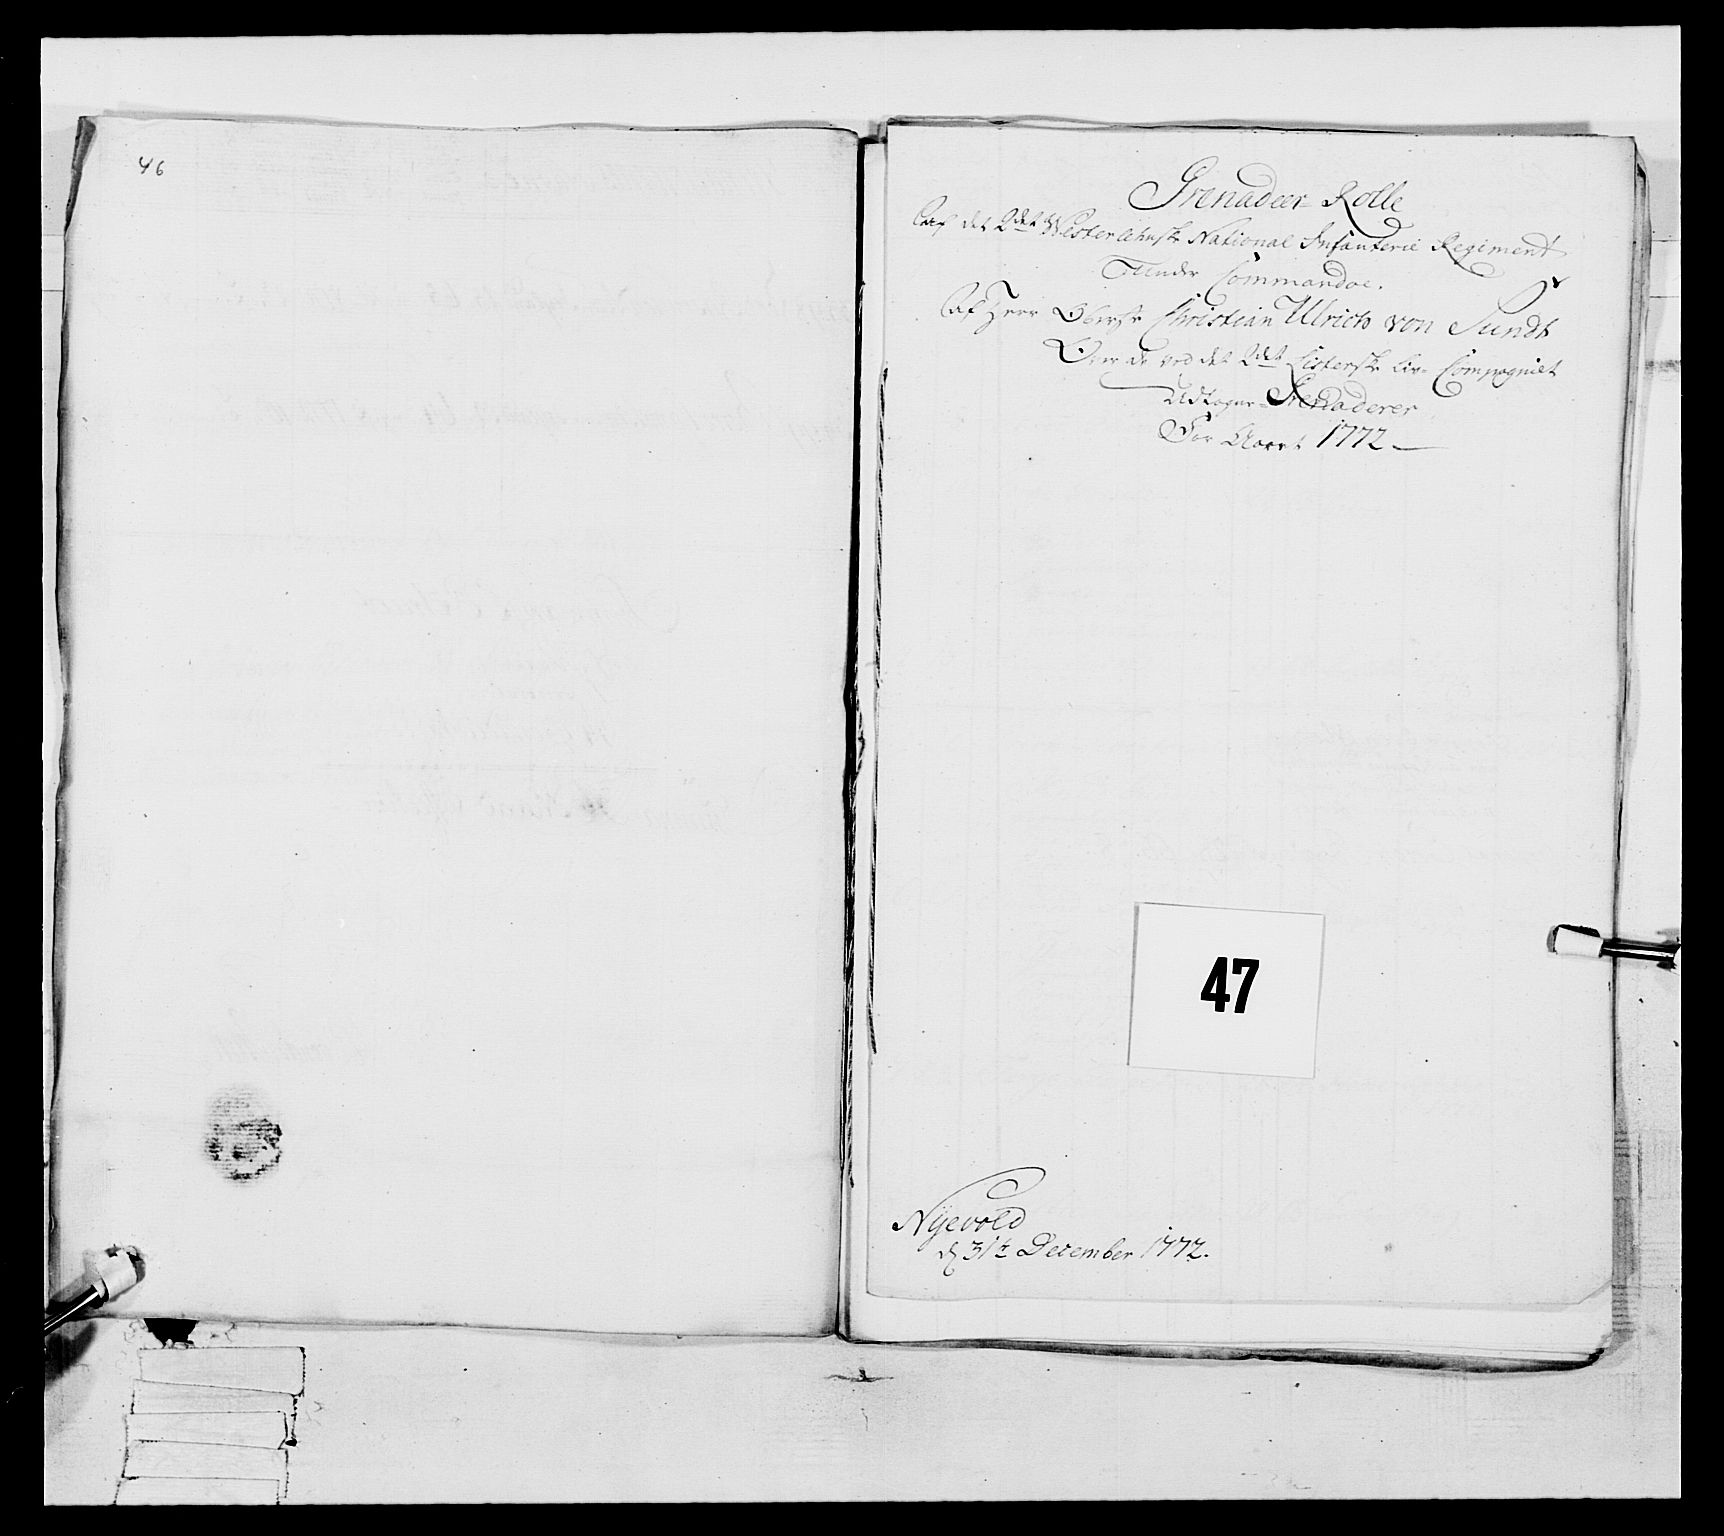 46
Grenadeer= Rolle
Af det 2det Westerlehnske National Infanterie Regiment
Under Commandoe.
Af Herr Oberste Christian Ulrich von Sundt
Over de ved det 2det Listerske Liv= Compagniet
Udtagne= Grenaderer
For Aaret 1772
47
Nyevold
d 31te December 1772.